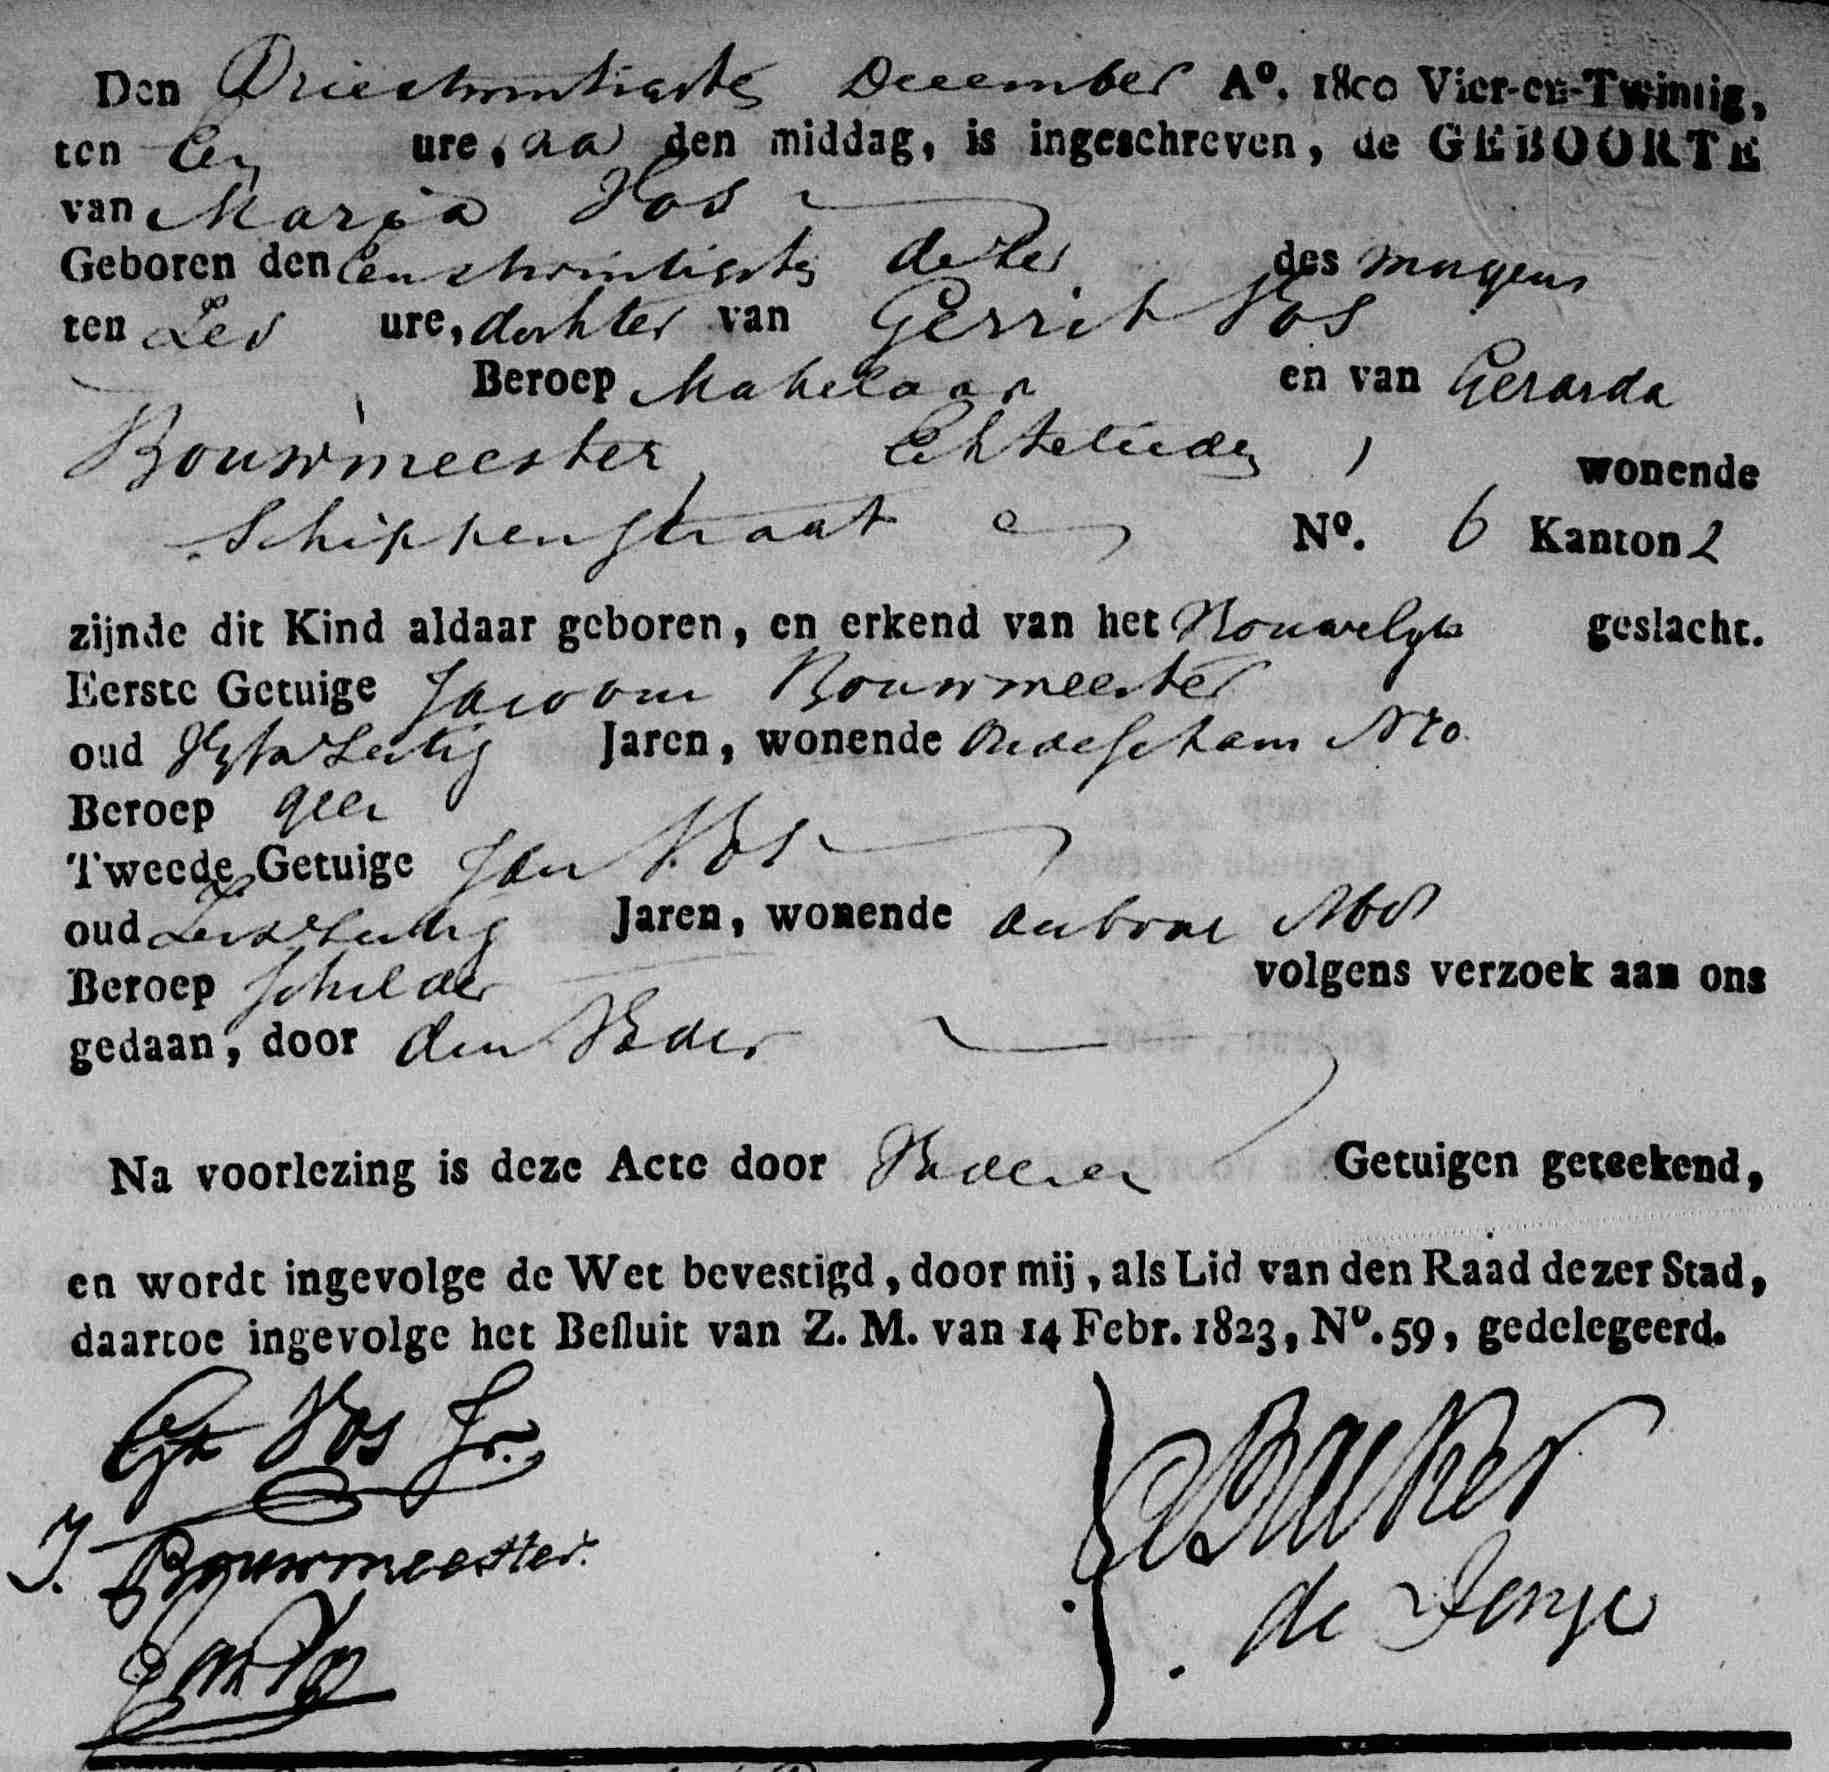 Den Drieentwintigste December Aº. 1800 Vier-en-Twintig,
ten Een ure, na den middag, is ingeschreven, de GEBOORTE
van Maria Vos
Geboren den Eenentwintigsten dezer des morgens
ten Zes ure, dochter van Gerrit Vos
Beroep Makelaar en van Gerarda
Bouwmeester, Echtelieden, wonende
Schippenstraat Nº. 6 Kanton 2
zijnde dit Kind aldaar geboren, en erkend van het Vrouwelyke geslacht.
Eerste Getuige Jacobus Bouwmeester
oud Jaren, wonende Oudeschans
Beroep geen
Tweede Getuige Jan Vos
oud Jaren, wonende
Beroep Schilder volgens verzoek aan ons
gedaan, door den Vader
Na voorlezing is deze Acte door Vader en Getuigen geteekend,
en wordt ingevolge de Wet bevestigd, door mij, als Lid van den Raad dezer Stad,
daartoe ingevolge het Besluit van Z. M. van 14 Febr. 1823, Nº. 59, gedelegeerd.
Vos Jr. Backer
J. Bouwmeester. de Jonge
Jan Vos